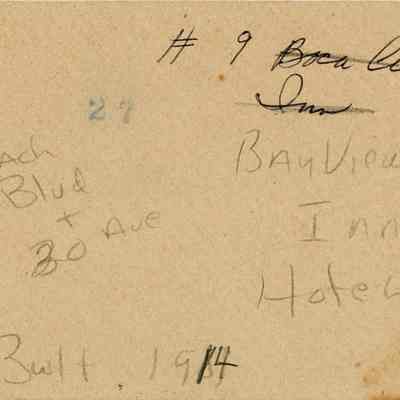 # 9 Boca
Inn
27
ach
Blvd
+
30 Ave
BayView
Inn
Hotel
Built. 1914